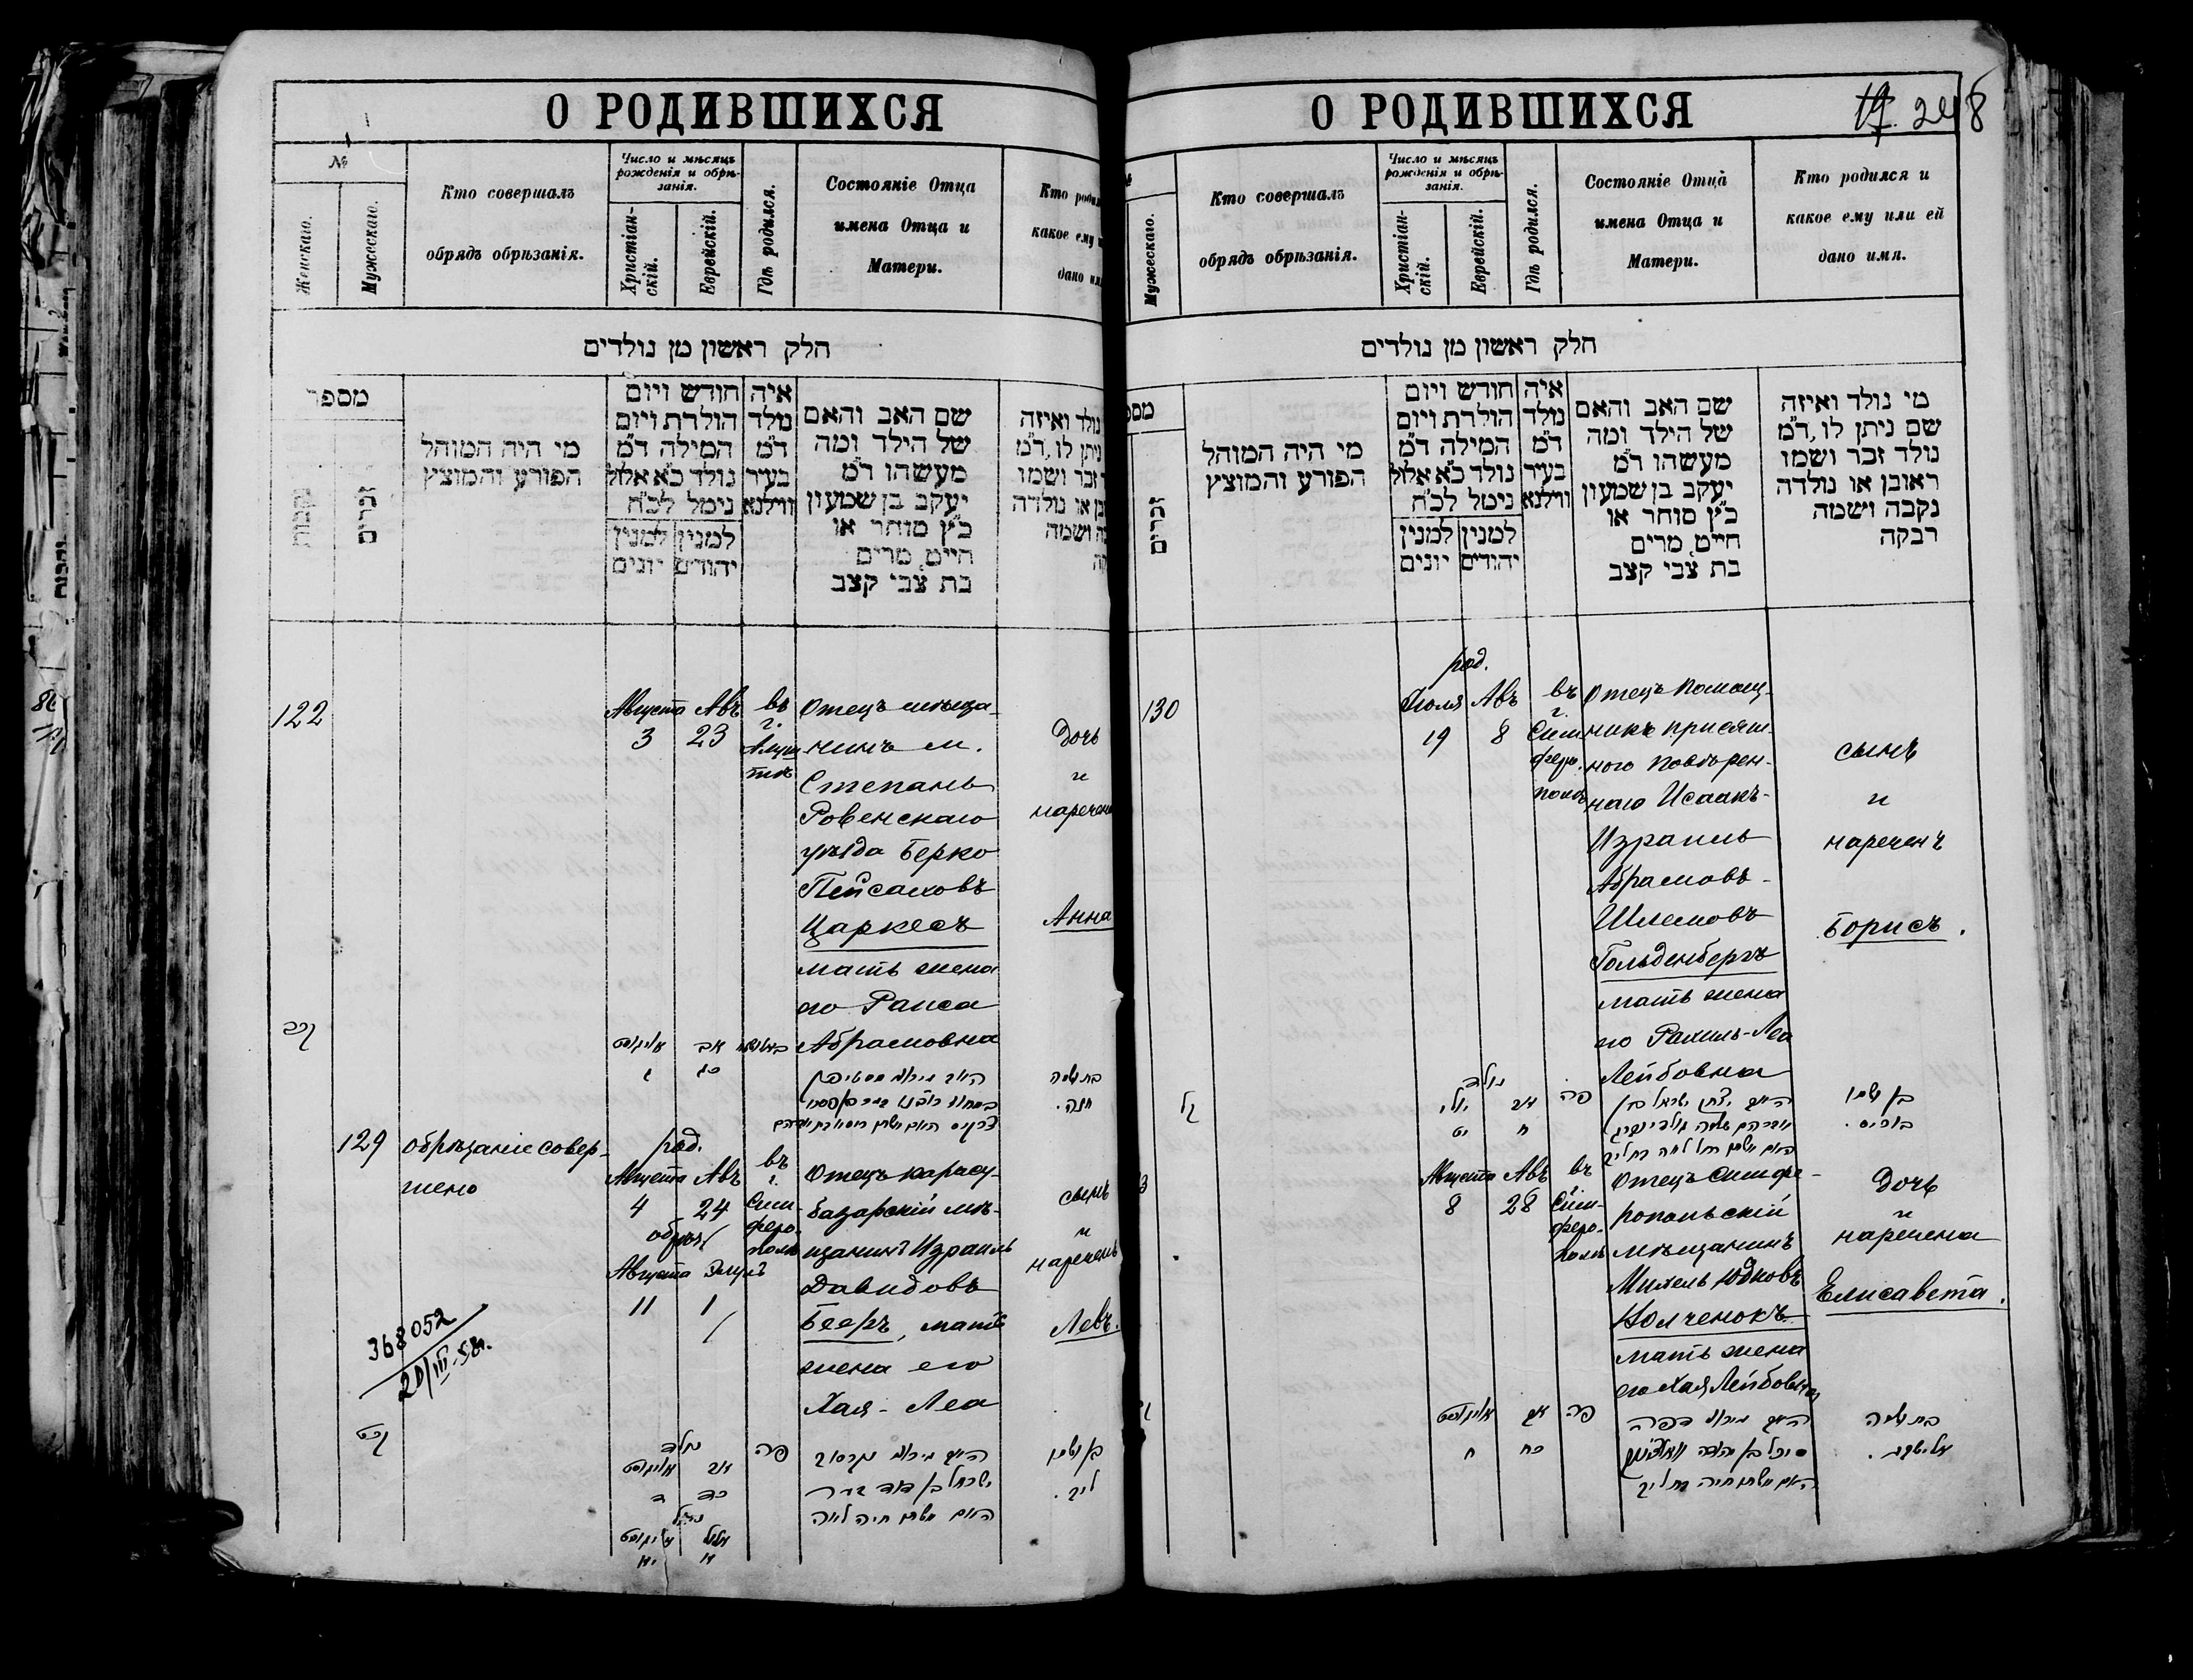 О РОДИВШИХСЯ
№
Женскаго.
Мужескаго.
Кто совершалъ
обрядъ обрѣзанія.
Число и мѣсяцъ
рожденія и обрѣ-
занія.
Христіан-
скій.
Еврейскій.
Гдѣ родился.
Состояніе Отца
имена Отца и
Матери.
Кто
какое ему
дано
חלק ראשון מן נולדים
מספר
נקבות
זכרים
מי היה המוהל
הפורע והמוצץ
חודש ויום
הולדת ויום
המילה ד״מ
נולד כ״א אלול
נימל לכ״ח
למנין למנין
יהודים יונים
איה
נולד
ד״מ
בעיר
ווילנא
שם האב והאם
של הילד ומה
מעשהו ד״מ
יעקב בן שמעון
כ״ץ סוחר או
חייט, מרים
בת צבי קצב
נולד ואיזה
ניתן לו, ד״מ
זכר ושמו
או נולדה
ושמה
122
Августа Авъ
3 23
въ
г.
Алуш
тѣ
Отецъ мѣща-
нинъ м.
Степань
Ровенскаго
уѣзда Берко
Пейсаховъ
Царкесъ
мать жена
его Раиса
Абрамовна
Дочь
и
наречена
Анна
קכב
אויגוסט אב
ג כג
בת ושמה
חנה.
129
обрѣзаніе совер-
шено
род.
Августа Авъ
4 24
обрѣз
Августа Элулъ
11 1
въ
г.
Сим-
феро-
полѣ
Отецъ карасу-
базарскій мѣ-
щанинъ Израиль
Давидовъ
Бееръ, мать
жена его
Хая-Леа
сынъ
и
нареченъ
Левъ.
368052
20/III-58г.
קכט
נולד
אויגוסט אב
ד כד
נימול
אויגוסט אלול
יא א
פה
ישראל בן דוד
חיה לאה
בן ושמו
ליב.
О РОДИВШИХСЯ
248
Мужескаго.
Кто совершалъ
обрядъ обрѣзанія.
Число и мѣсяцъ
рожденія и обрѣ-
занія.
Христіан-
скій.
Еврейскій.
Гдѣ родился.
Состояніе Отца
имена Отца и
Матери.
Кто родился и
какое ему или ей
дано имя.
חלק ראשון מן נולדים
זכרים
מי היה המוהל
הפורע והמוצץ
חודש ויום
הולדת ויום
המילה ד״מ
נולד כ״א אלול
נימל לכ״ח
למנין למנין
יהודים יונים
איה
נולד
ד״מ
בעיר
ווילנא
שם האב והאם
של הילד ומה
מעשהו ד״מ
יעקב בן שמעון
כ״ץ סוחר או
חייט, מרים
בת צבי קצב
מי נולד ואיזה
שם ניתן לו, ד״מ
נולד זכר ושמו
ראובן או נולדה
נקבה ושמה
רבקה
130
род.
Іюля Авъ
19 8
въ
г.
Сим
феро-
полѣ
Отецъ Помощ-
никъ присяж-
ного повѣрен-
наго Исаакъ-
Израиль
Абрамовъ-
Шлемовъ
Гольденбергъ
мать жена
его Рахиль-Леа
Лейбовна
сынъ
и
нареченъ
Борисъ.
קל
נולד
יולי אב
יט ח
פה
בן ושמו
באריס.
Августа Авъ
8 28
въ
г.
Сим-
феро-
полѣ
Отецъ Симфе-
ропольскій
мѣщанинъ
Михель Юдковъ
Волченокъ
мать жена
его Хая Лейбовна
Дочь
и
наречена
Елисавета.
אויגוסט אב
ח כח
פה
בת ושמה